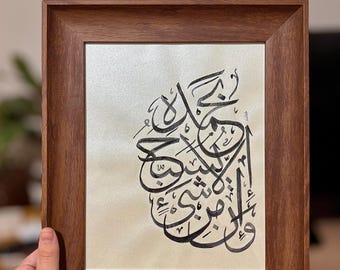 وَإِن مِّن شَيْءٍ
إِلَّا يُسَبِّحُ
بِحَمْدِهِ